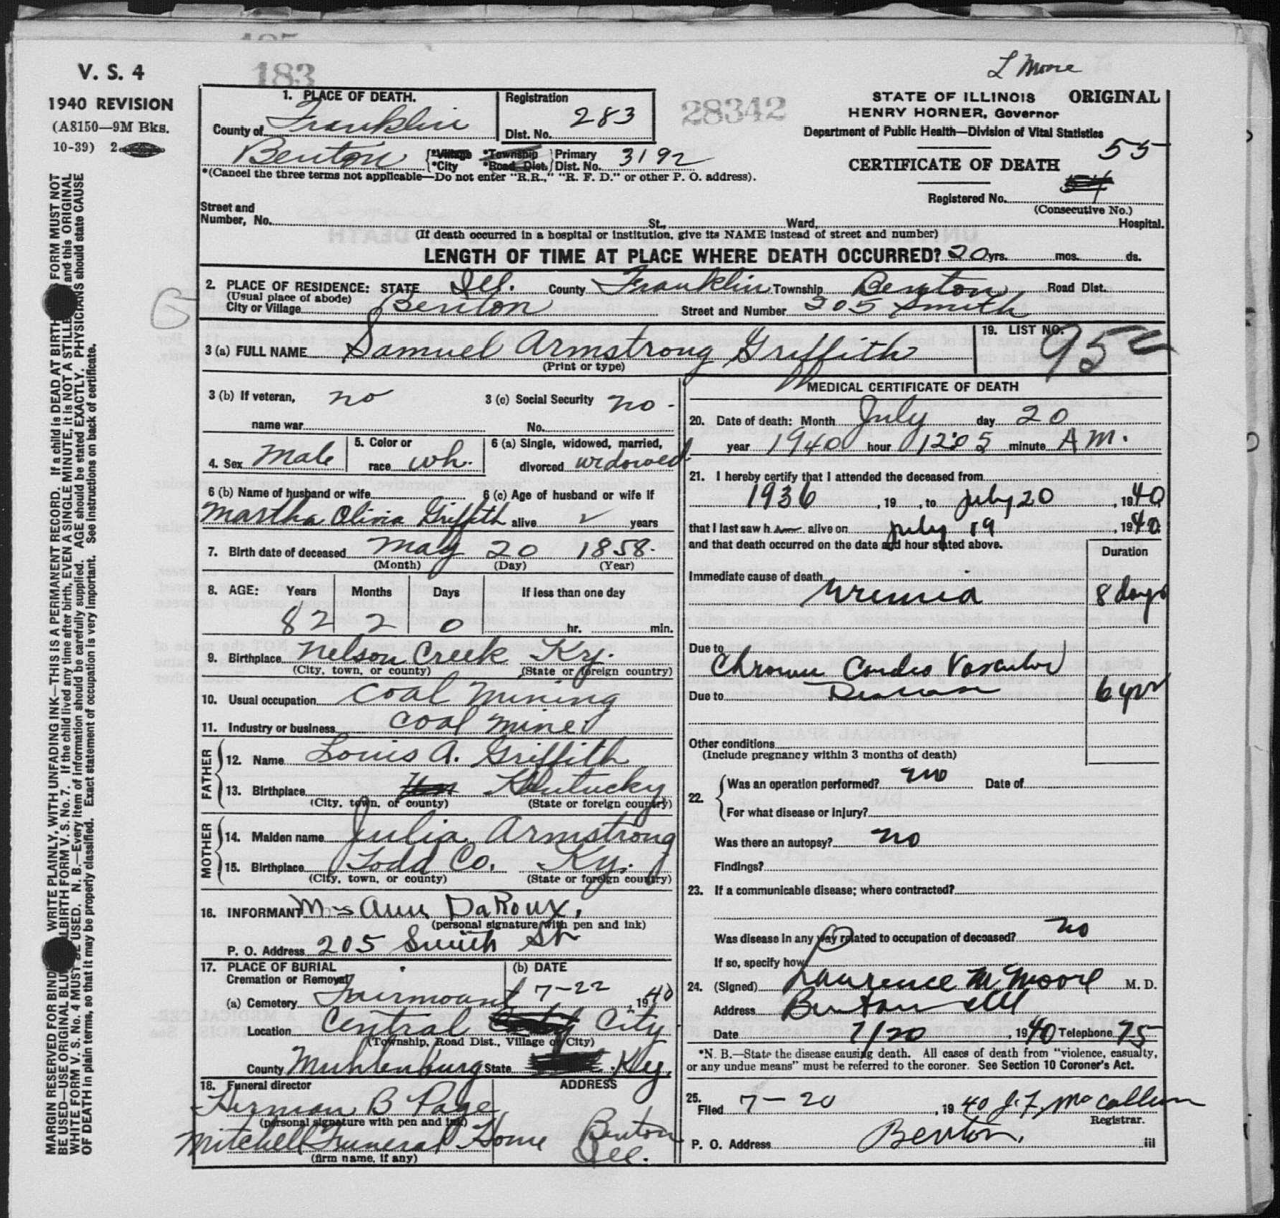 L Moore
V. S. 4
1940 REVISION
(A8150—9M Bks.
10-39) 2
183
28342
STATE OF ILLINOIS ORIGINAL
HENRY HORNER, Governor
Department of Public Health—Division of Vital Statistics
CERTIFICATE OF DEATH 55
Registered No.
(Consecutive No.)
1. PLACE OF DEATH.
County of Franklin
Registration Dist. No. 283
Benton *Village *City *Township *Road Dist. Primary Dist. No. 3192
*(Cancel the three terms not applicable—Do not enter "R.R.," "R. F. D." or other P. O. address).
Street and Number, No. St., Ward, Hospital.
(If death occurred in a hospital or institution, give its NAME instead of street and number)
LENGTH OF TIME AT PLACE WHERE DEATH OCCURRED? 20 yrs. mos. ds.
2. PLACE OF RESIDENCE: STATE Ill. County Franklin Township Benton Road Dist.
(Usual place of abode)
City or Village Benton Street and Number 205 Smith
3 (a) FULL NAME Samuel Armstrong Griffith
(Print or type)
19. LIST NO. 95c
3 (b) If veteran, name war no
3 (c) Social Security No. no.
4. Sex Male 5. Color or race wh. 6 (a) Single, widowed, married, divorced widowed
6 (b) Name of husband or wife Martha Olivia Griffith
6 (c) Age of husband or wife if alive years
7. Birth date of deceased May 20 1858.
(Month) (Day) (Year)
8. AGE: Years Months Days If less than one day
82 2 0 hr. min.
9. Birthplace Nelson Creek Ky.
(City, town, or county) (State or foreign country)
10. Usual occupation Coal Mining
11. Industry or business Coal Mines
FATHER
12. Name Louis A. Griffith
13. Birthplace Kentucky
(City, town, or county) (State or foreign country)
MOTHER
14. Maiden name Julia Armstrong
15. Birthplace Todd Co. Ky.
(City, town, or county) (State or foreign country)
16. INFORMANT Mrs Ann DaRoux.
(personal signature with pen and ink)
P. O. Address 205 Smith St
17. PLACE OF BURIAL Cremation or Removal? (b) DATE
(a) Cemetery Fairmount 7-22, 1940
Location Central City
(Township, Road Dist., Village or City)
County Muhlenburg State Ky.
18. Funeral director ADDRESS
Herman B Page
(personal signature with pen and ink)
Mitchell Funeral Home Benton Ill.
(firm name, if any)
MEDICAL CERTIFICATE OF DEATH
20. Date of death: Month July day 20
year 1940 hour 1205 minute A M.
21. I hereby certify that I attended the deceased from
1936, 19 , to July 20, 1940
that I last saw h alive on July 19, 1940
and that death occurred on the date and hour stated above. Duration
Immediate cause of death Uremia 8 days
Due to Chronic Cardio Vascular
Due to Disease 6 yrs
Other conditions
(Include pregnancy within 3 months of death)
22. Was an operation performed? no Date of
For what disease or injury?
Was there an autopsy? no
Findings?
23. If a communicable disease; where contracted?
Was disease in any way related to occupation of deceased? no
If so, specify how
24. (Signed) Laurence M. Moore M. D.
Address Benton Ill
Date 7/20 1940 Telephone 75
*N. B.—State the disease causing death. All cases of death from "violence, casualty,
or any undue means" must be referred to the coroner. See Section 10 Coroner's Act.
25. Filed 7-20, 1940 J. F. McCollum
Registrar.
P. O. Address Benton, Ill